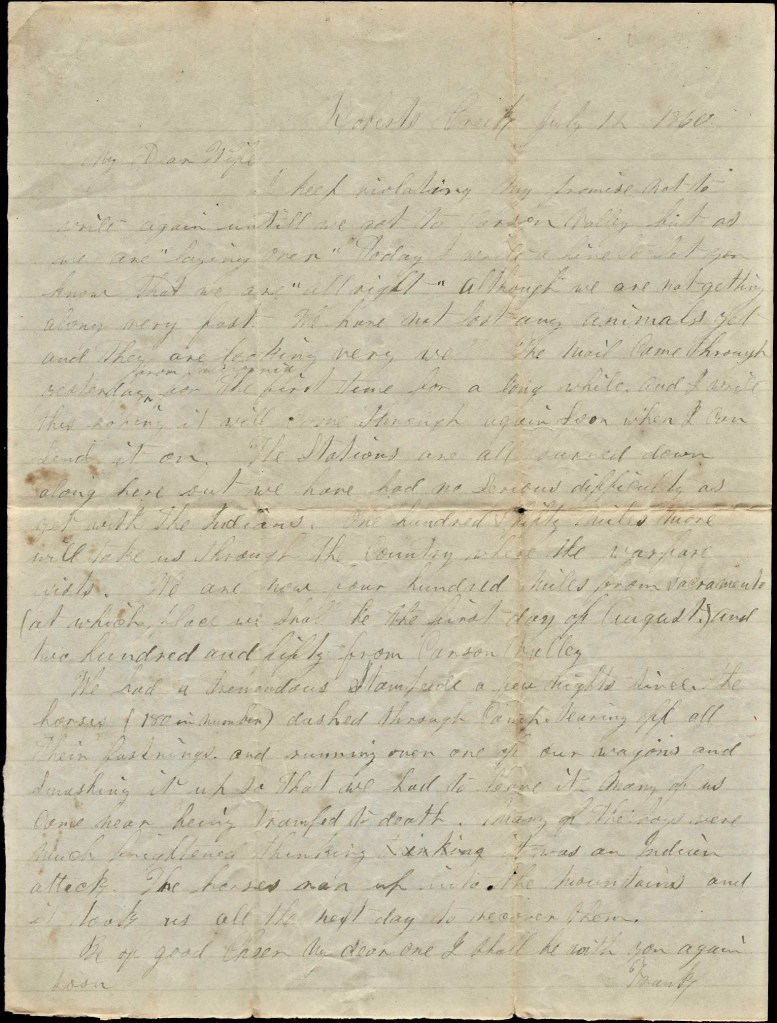 Roberts Creek July 1860
My Dear Wife
I keep violating my promise not to
write again untill we got to Carson Valley but as
we are "laying over" Today I write a line to let you
know that we are "all right" although we are not getting
along very fast. We have not lost any animals yet
and they are looking very well The mail came through
from California
yesterday for the first time for a long while. and I write
this hoping it will come through again soon when I can
send it on. The Stations are all burned down
along here but we have had no serious difficulty as
yet with the Indians. One hundred & fifty miles more
will take us through the Country where the warfare
exists. We are now four hundred miles from Sacramento
(at which place we shall be the first day of August.) and
two hundred and fifty from Carson Valley
We had a tremendous Stampede a few nights since. The
horses (180 in number) dashed through Camp tearing off all
their fastnings. and running over one of our wagons and
smashing it up so that we had to leave it. Many of us
came near being trampled to death. Many of the boys were
much frightened thinking it was an Indian
attack. The horses ran up into the mountains and
it took us all the next day to recover them.
Be of good cheer my dear one I shall be with you again
soon Frank